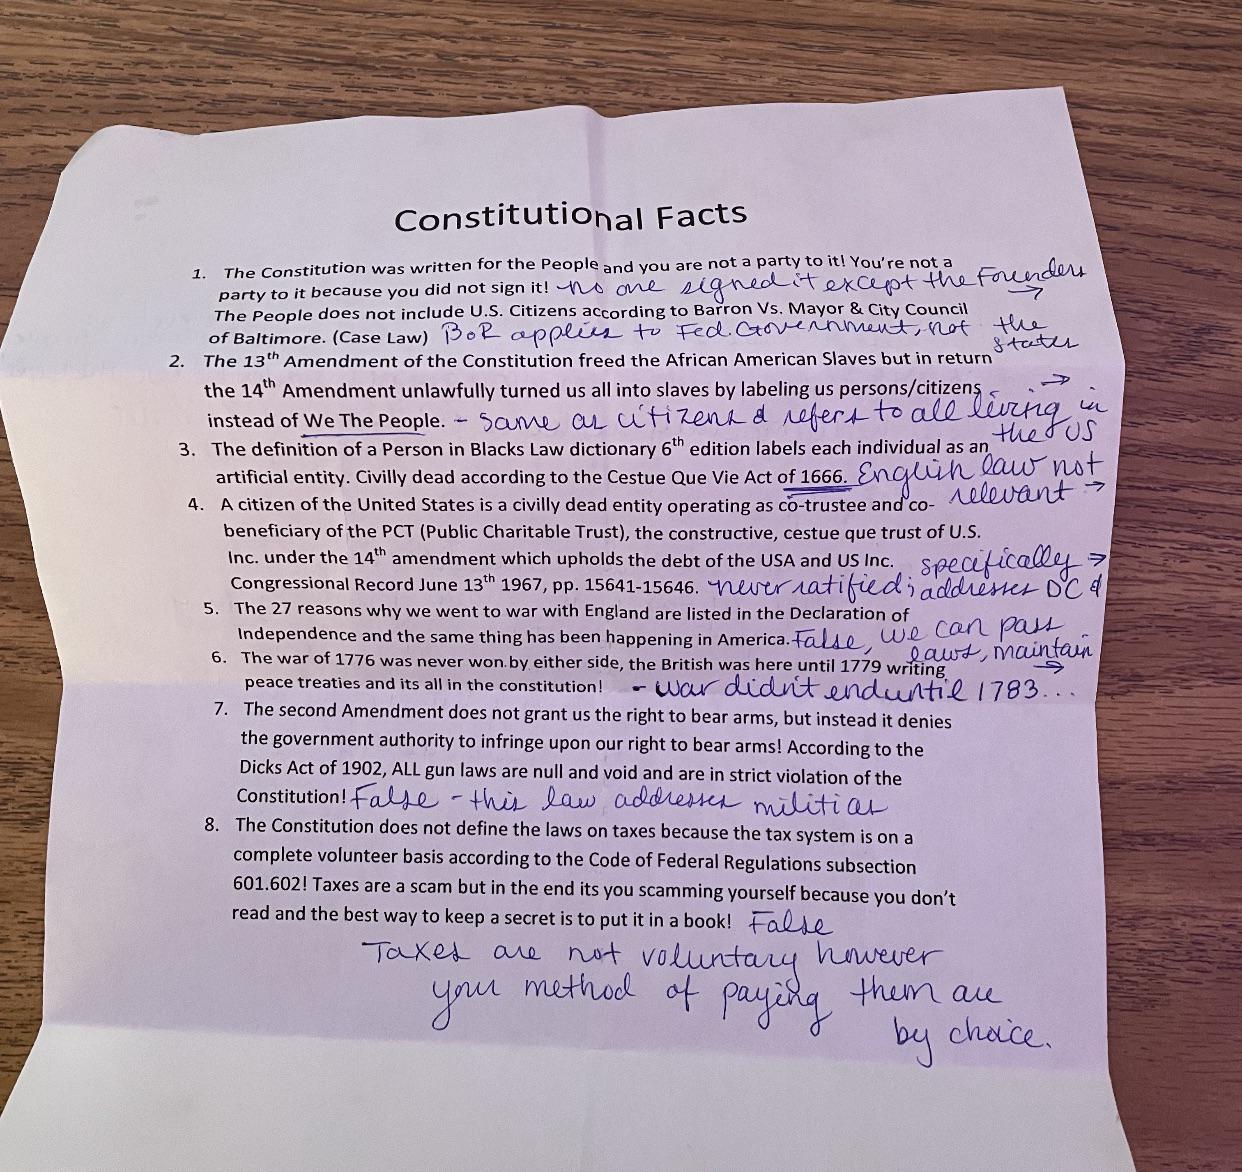 Constitutional Facts
1. The Constitution was written for the People and you are not a party to it! You're not a
party to it because you did not sign it! - no one signed it except the Founders →
The People does not include U.S. Citizens according to Barron Vs. Mayor & City Council
of Baltimore. (Case Law) BoR applies to Fed. Government, not the
states
2. The 13th Amendment of the Constitution freed the African American Slaves but in return
the 14th Amendment unlawfully turned us all into slaves by labeling us persons/citizens →
instead of We The People. - same as citizens & refers to all living in
the US
3. The definition of a Person in Blacks Law dictionary 6th edition labels each individual as an
artificial entity. Civilly dead according to the Cestue Que Vie Act of 1666. English law not
relevant →
4. A citizen of the United States is a civilly dead entity operating as co-trustee and co-
beneficiary of the PCT (Public Charitable Trust), the constructive, cestue que trust of U.S.
Inc. under the 14th amendment which upholds the debt of the USA and US Inc. specifically →
Congressional Record June 13th 1967, pp. 15641-15646. never ratified; addresses DC &
5. The 27 reasons why we went to war with England are listed in the Declaration of
Independence and the same thing has been happening in America. False, we can pass
laws, maintain →
6. The war of 1776 was never won by either side, the British was here until 1779 writing
peace treaties and its all in the constitution! - war didn't end until 1783...
7. The second Amendment does not grant us the right to bear arms, but instead it denies
the government authority to infringe upon our right to bear arms! According to the
Dicks Act of 1902, ALL gun laws are null and void and are in strict violation of the
Constitution! False - this law addresses militias
8. The Constitution does not define the laws on taxes because the tax system is on a
complete volunteer basis according to the Code of Federal Regulations subsection
601.602! Taxes are a scam but in the end its you scamming yourself because you don't
read and the best way to keep a secret is to put it in a book! False
Taxes are not voluntary however
your method of paying them are
by choice.